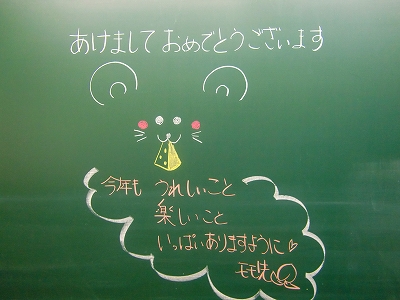 あけまして おめでとうございます
今年も うれしいこと
楽しいこと
いっぱいありますように♡